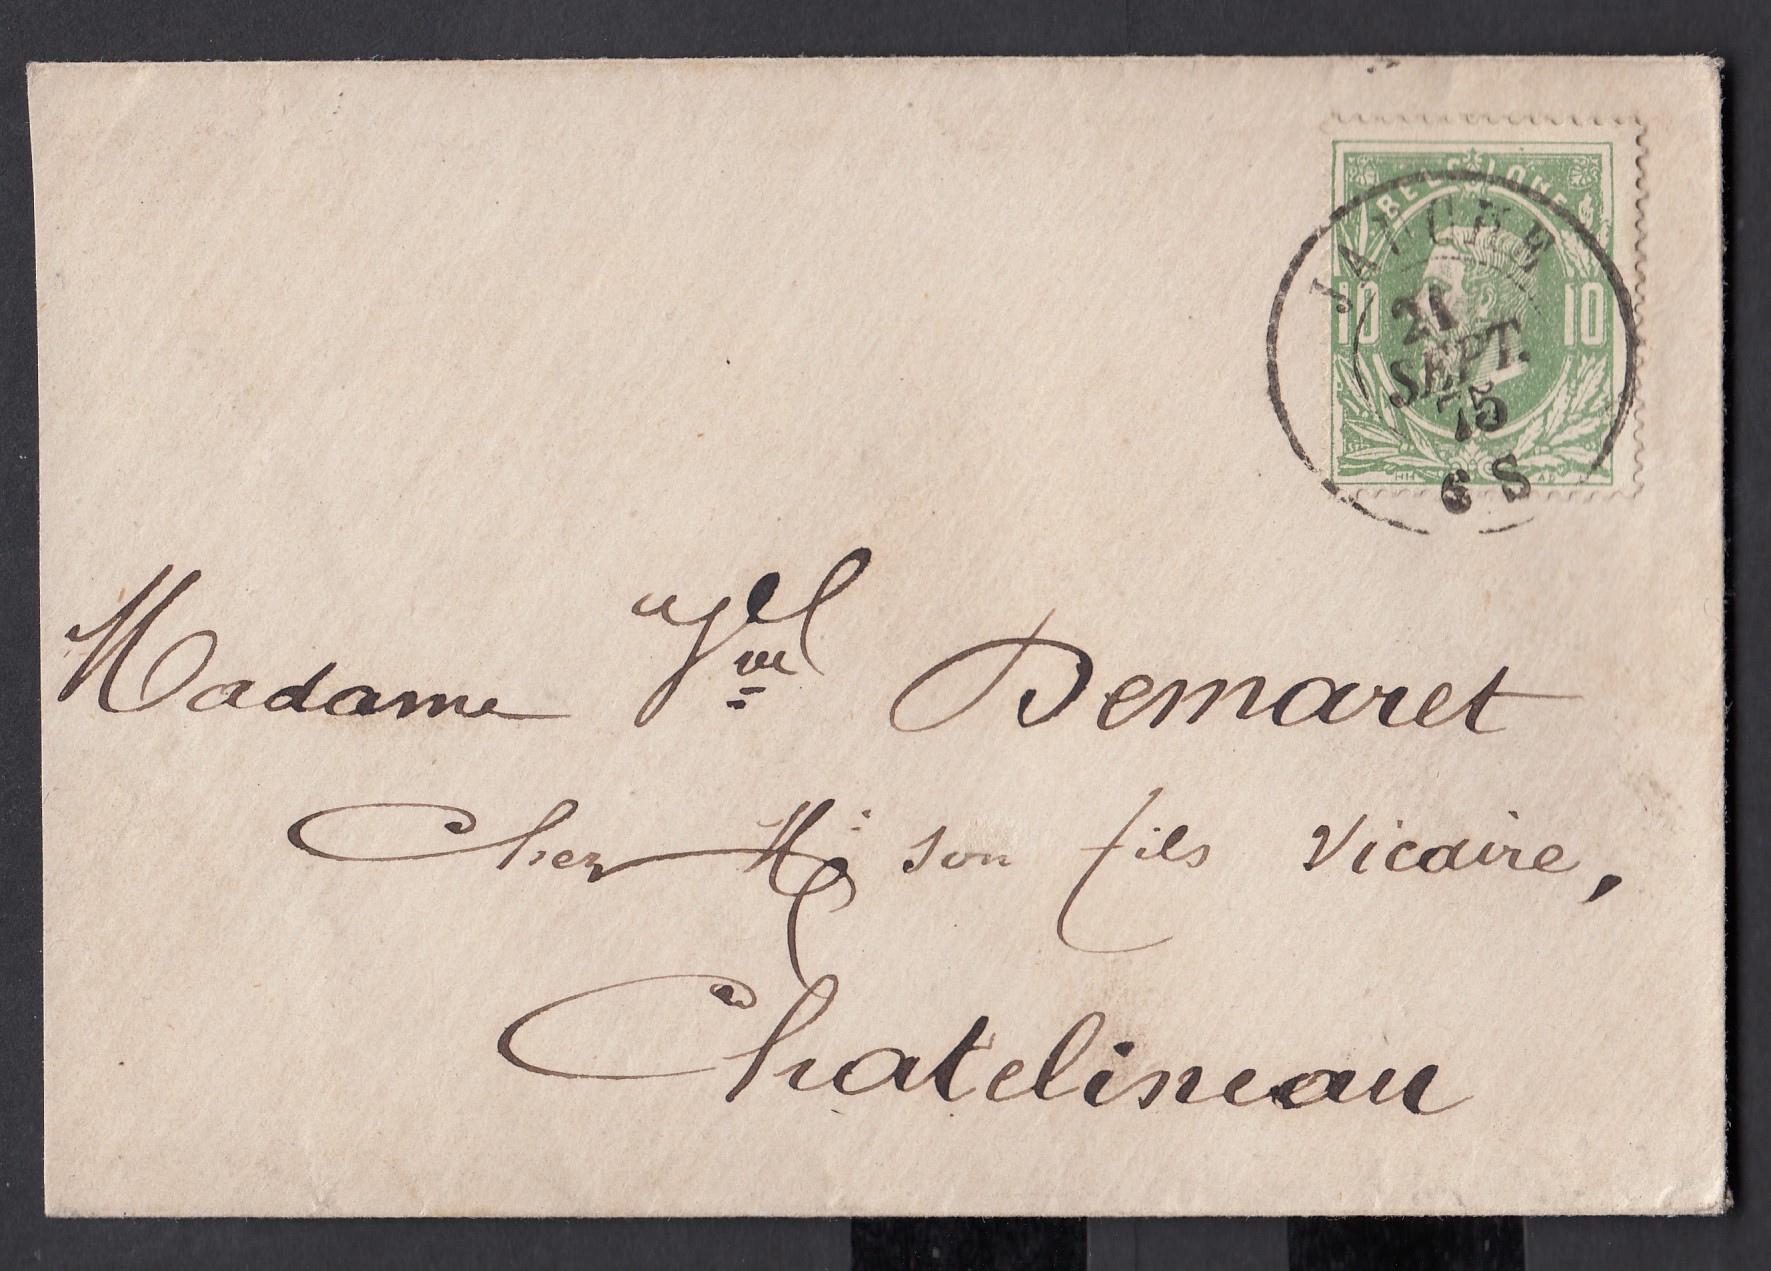 BELGIQUE
10 10
JAUCHE
21
SEPT.
75
6 S
Madame Vve Demaret
Chez Mr son fils Vicaire,
Chatelineau